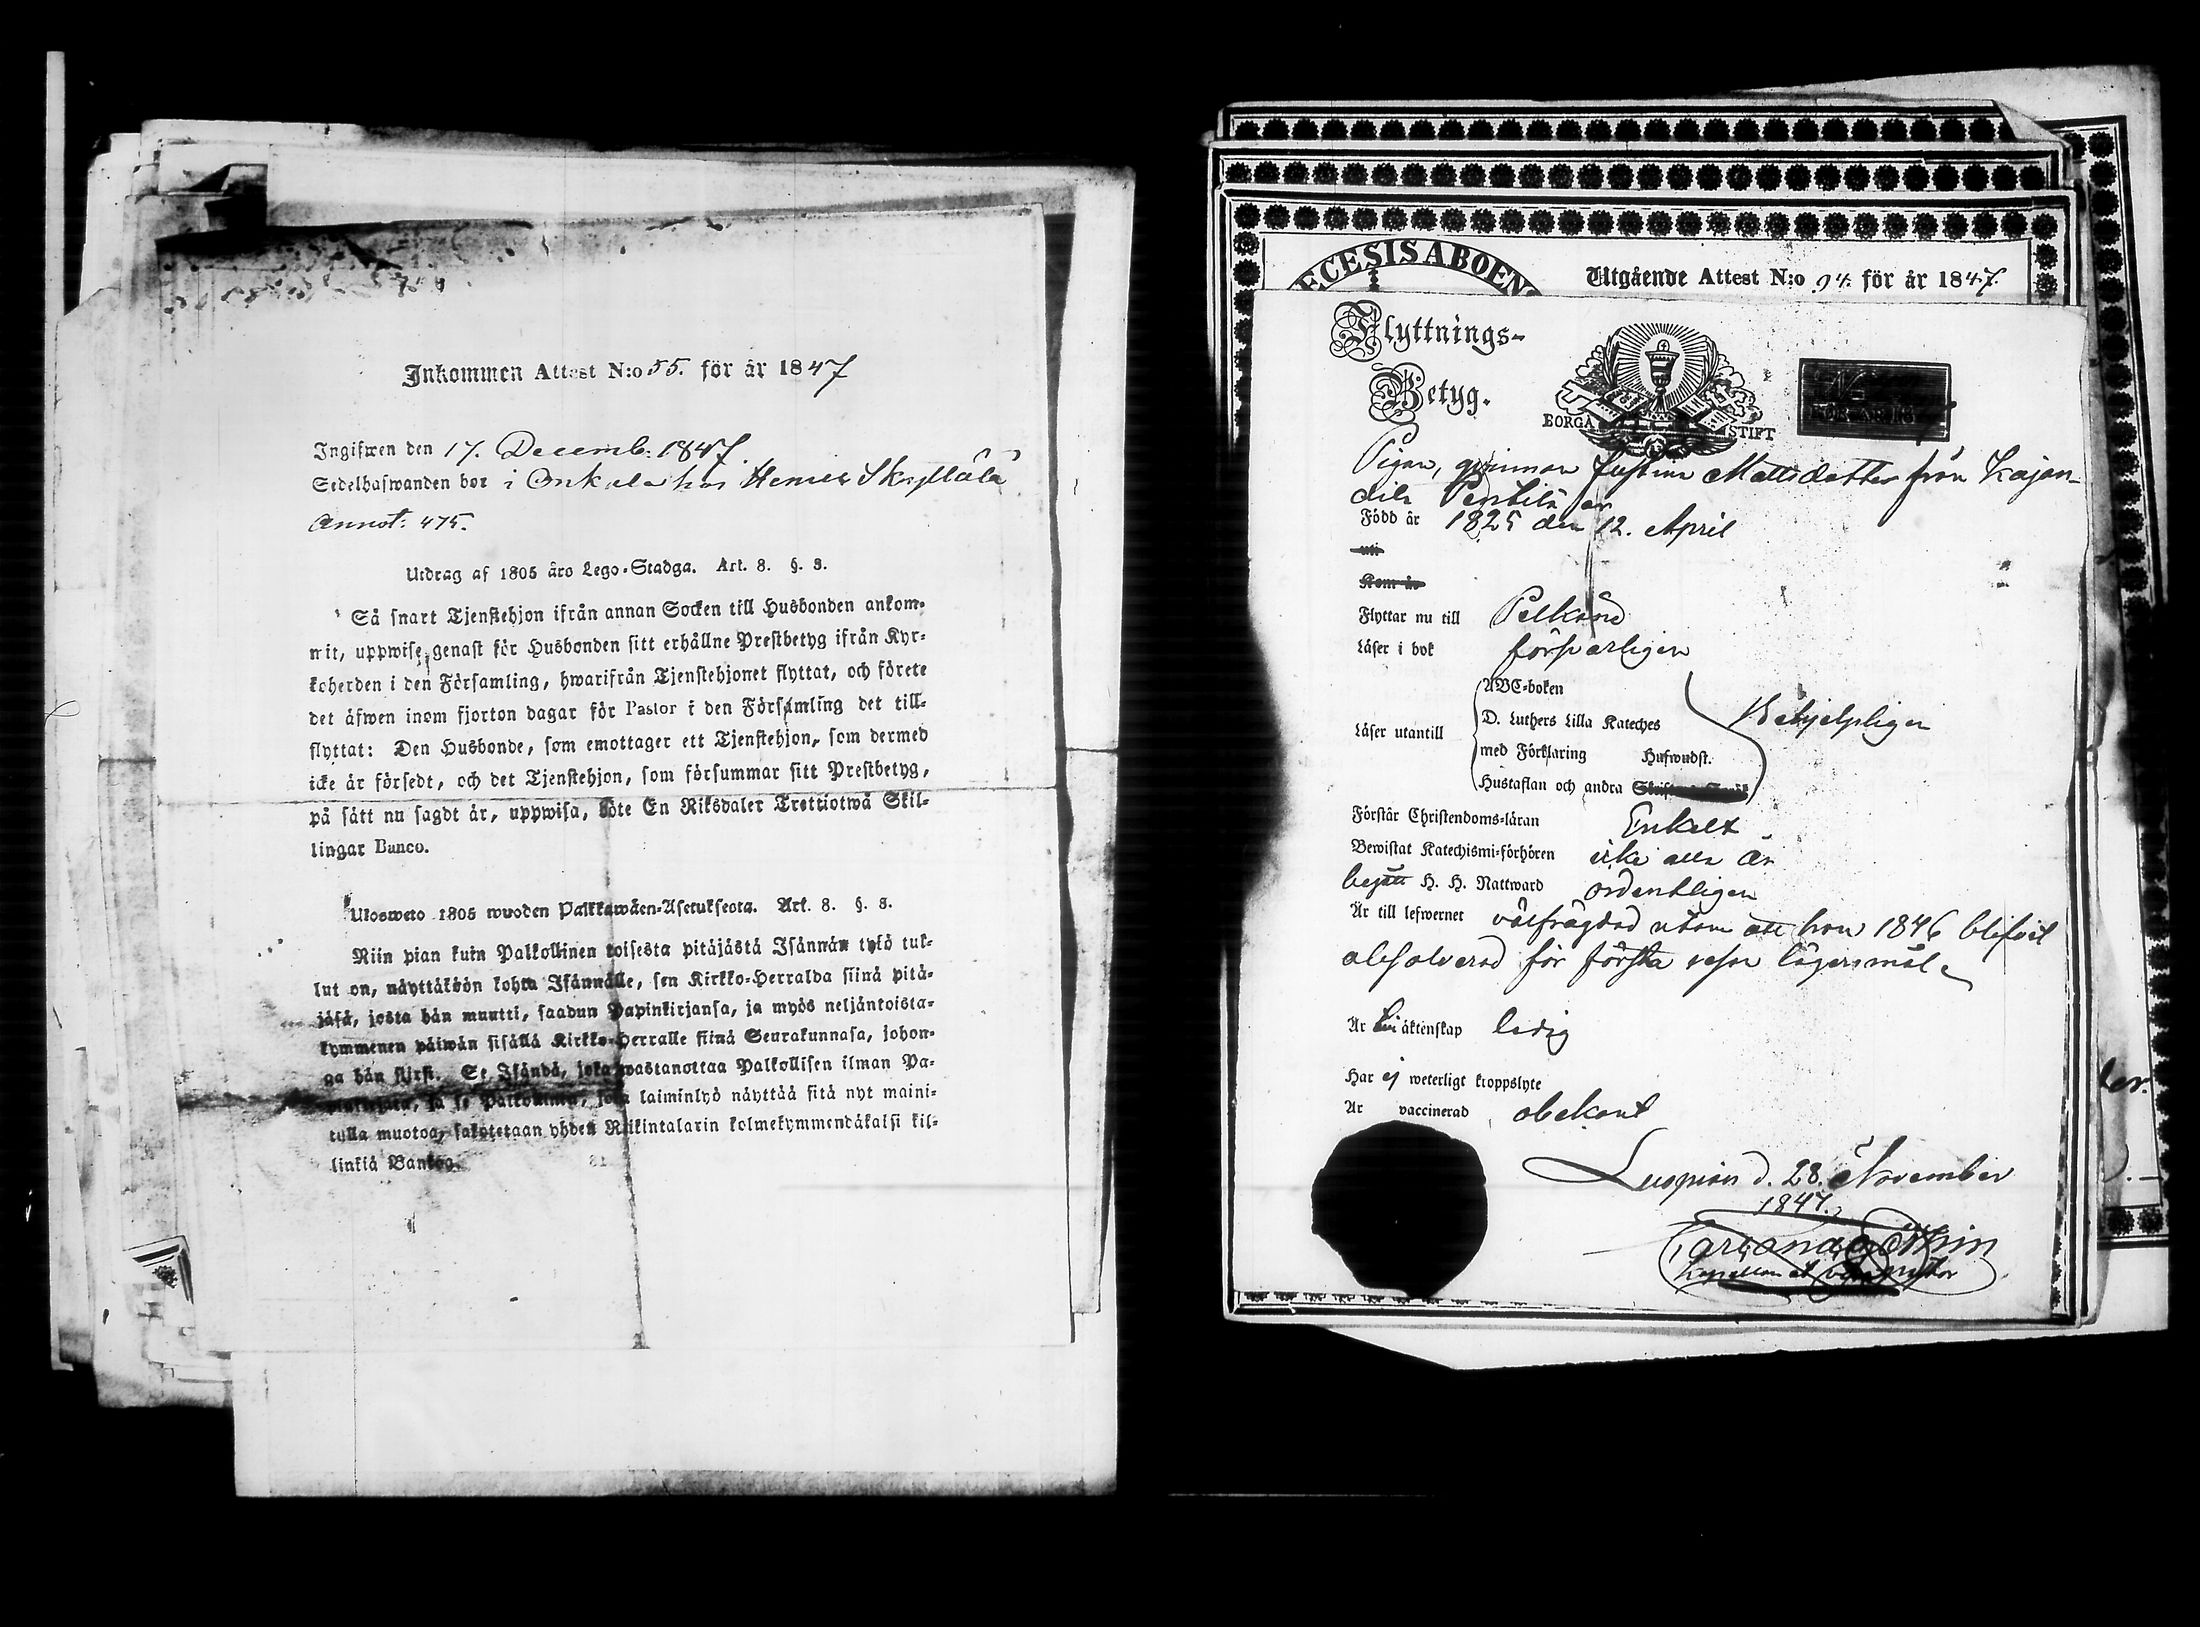 Inkommen Attest N:o 55. för år 1847
Ingifwen den 17. Decemb: 1847.
Sedelhafwanden bor i Onkala hos
Annot: 475.
Utdrag af 1805 års Lego-Stadga. Art. 8. §. 8.
Så snart Tjenstehjon ifrån annan Socken till Husbonden ankom-
mit, uppwise genast för Husbonden sitt erhållne Prestbetyg ifrån Kyr-
koherden i den Församling, hwarifrån Tjenstehjonet flyttat, och förete
det äfwen inom fjorton dagar för Pastor i den Församling det till-
flyttat: Den Husbonde, som emottager ett Tjenstehjon, som dermed
icke är försedt, och det Tjenstehjon, som försummar sitt Prestbetyg,
på sätt nu sagdt är, uppwisa, böte En Riksdaler Trettiotwå Skil-
lingar Banco.
Ulosweto 1805 wuoden Palkkawäen-Asetuksesta. Art. 8. §. 8.
Niin pian kuin Palkollinen toisesta pitäjästä Isännän työ tul-
lut on, näyttäköön kohta Isännälle, sen Kirkko-Herralda siinä pitä-
jäsä, josta hän muutti, saadun Papinkirjansa, ja myös neljäntoista-
kymmenen päiwän sisällä Kirkko-Herralle siinä Seurakunnasa, johon-
ga hän siirsi. Se Isändä, joka wastanottaa Palkollisen ilman Pa-
pinkirjata, ja se Palkollinen, joka laiminlyö näyttää sitä nyt maini-
tulla muotoa, sakotetaan yhden Riikintalarin kolmekymmendäkaksi kil-
linkiä Bankoa.
ECESIS ABOEN
Utgående Attest N:o 94. för år 1847.
Flyttnings-
Betyg.
BORGÅ STIFT
FÖR ÅR 18
Pigan, qvinnan Justina Mattsdotter från Kajan-
dila Penttilä är
Född år 1825 den 12. April
uti
Kom år
Flyttar nu till Pelkäne
Läser i bok försvarligen
Läser utantill
ABC-boken
D. Luthers Lilla Kateches
med Förklaring Hufwudst.
Hustaflan och andra
Behjelpligen
Förstår Christendoms-läran Enkelt
Bewistat Katechismi-förhören icke alla år
begått H. H. Nattward ordentligen
Är till lefwernet välfrägdad utom att hon 1846 blifvit
absolverad för första resan lägersmål
Är till äktenskap ledig
Har ej weterligt kroppslyte
Är vaccinerad obekant
Luopiois d. 28. November
1847.